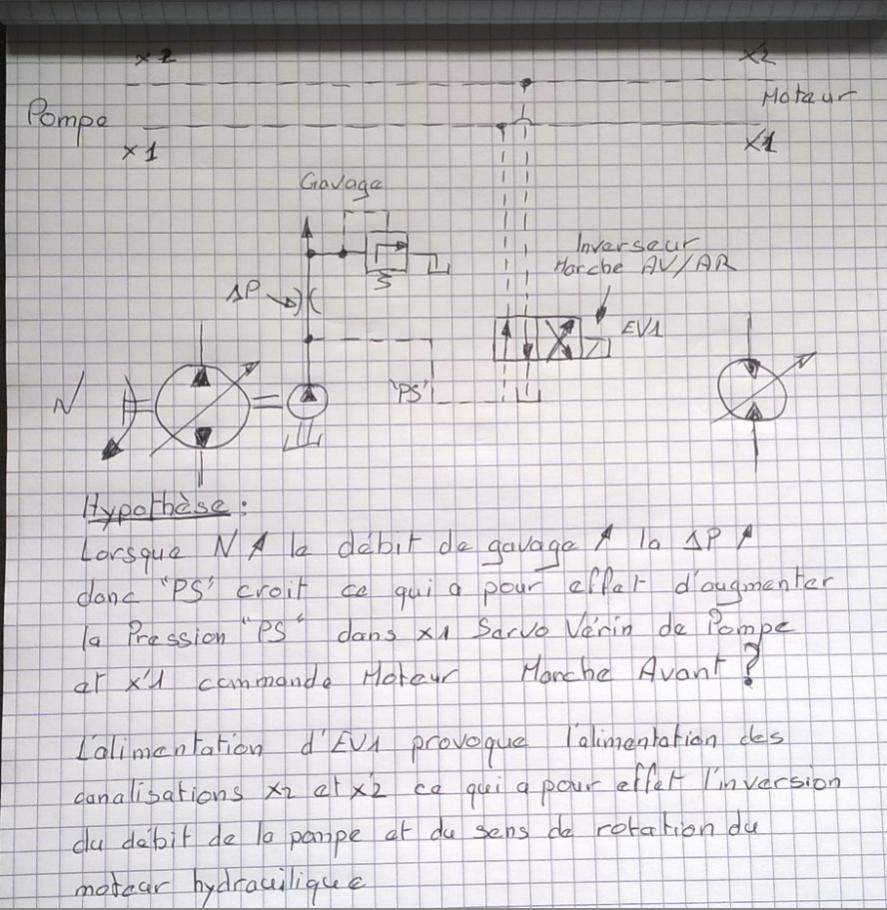 x2 x2
Pompe Moteur
x1 x1
Gavage
Inverseur
Marche AV/AR
ΔP
EV1
"PS"
N
Hypothèse :
Lorsque N ↗ le débit de gavage ↗ la ΔP ↗
donc "PS" croit ce qui a pour effet d'augmenter
la Pression "PS" dans x1 Servo Vérin de Pompe
et x'1 commande Moteur Marche Avant ?
L'alimentation d'EV1 provoque l'alimentation des
canalisations x2 et x'2 ce qui a pour effet l'inversion
du débit de la pompe et du sens de rotation du
moteur hydrauilique